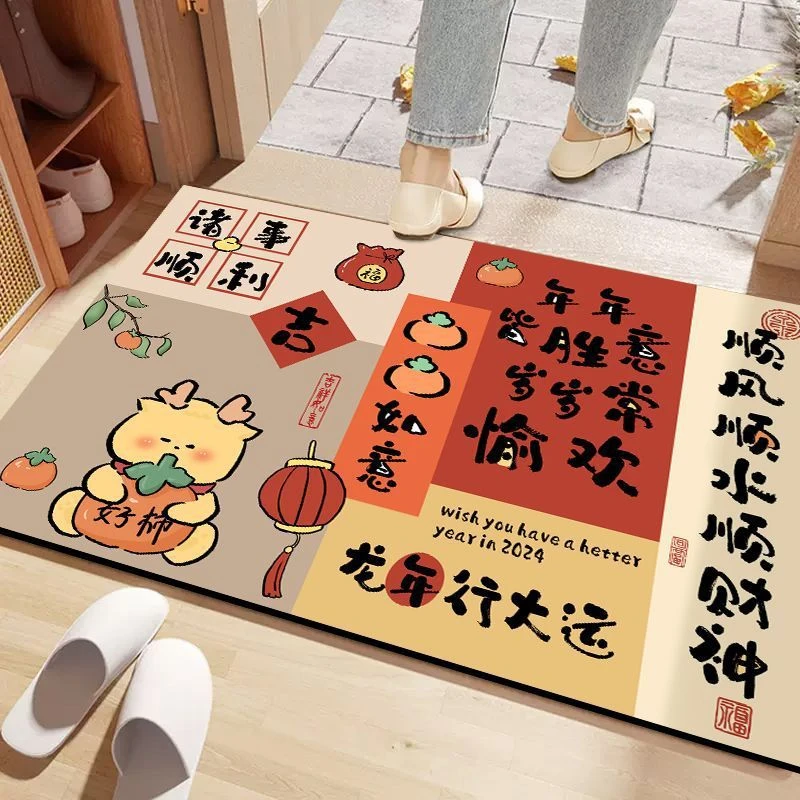 诸事
顺利
福
吉
吉祥如意
好柿
如意
年年
皆胜意
岁岁常
愉欢
wish you have a hetter
year in 2024
龙年行大运
顺风顺水顺财神